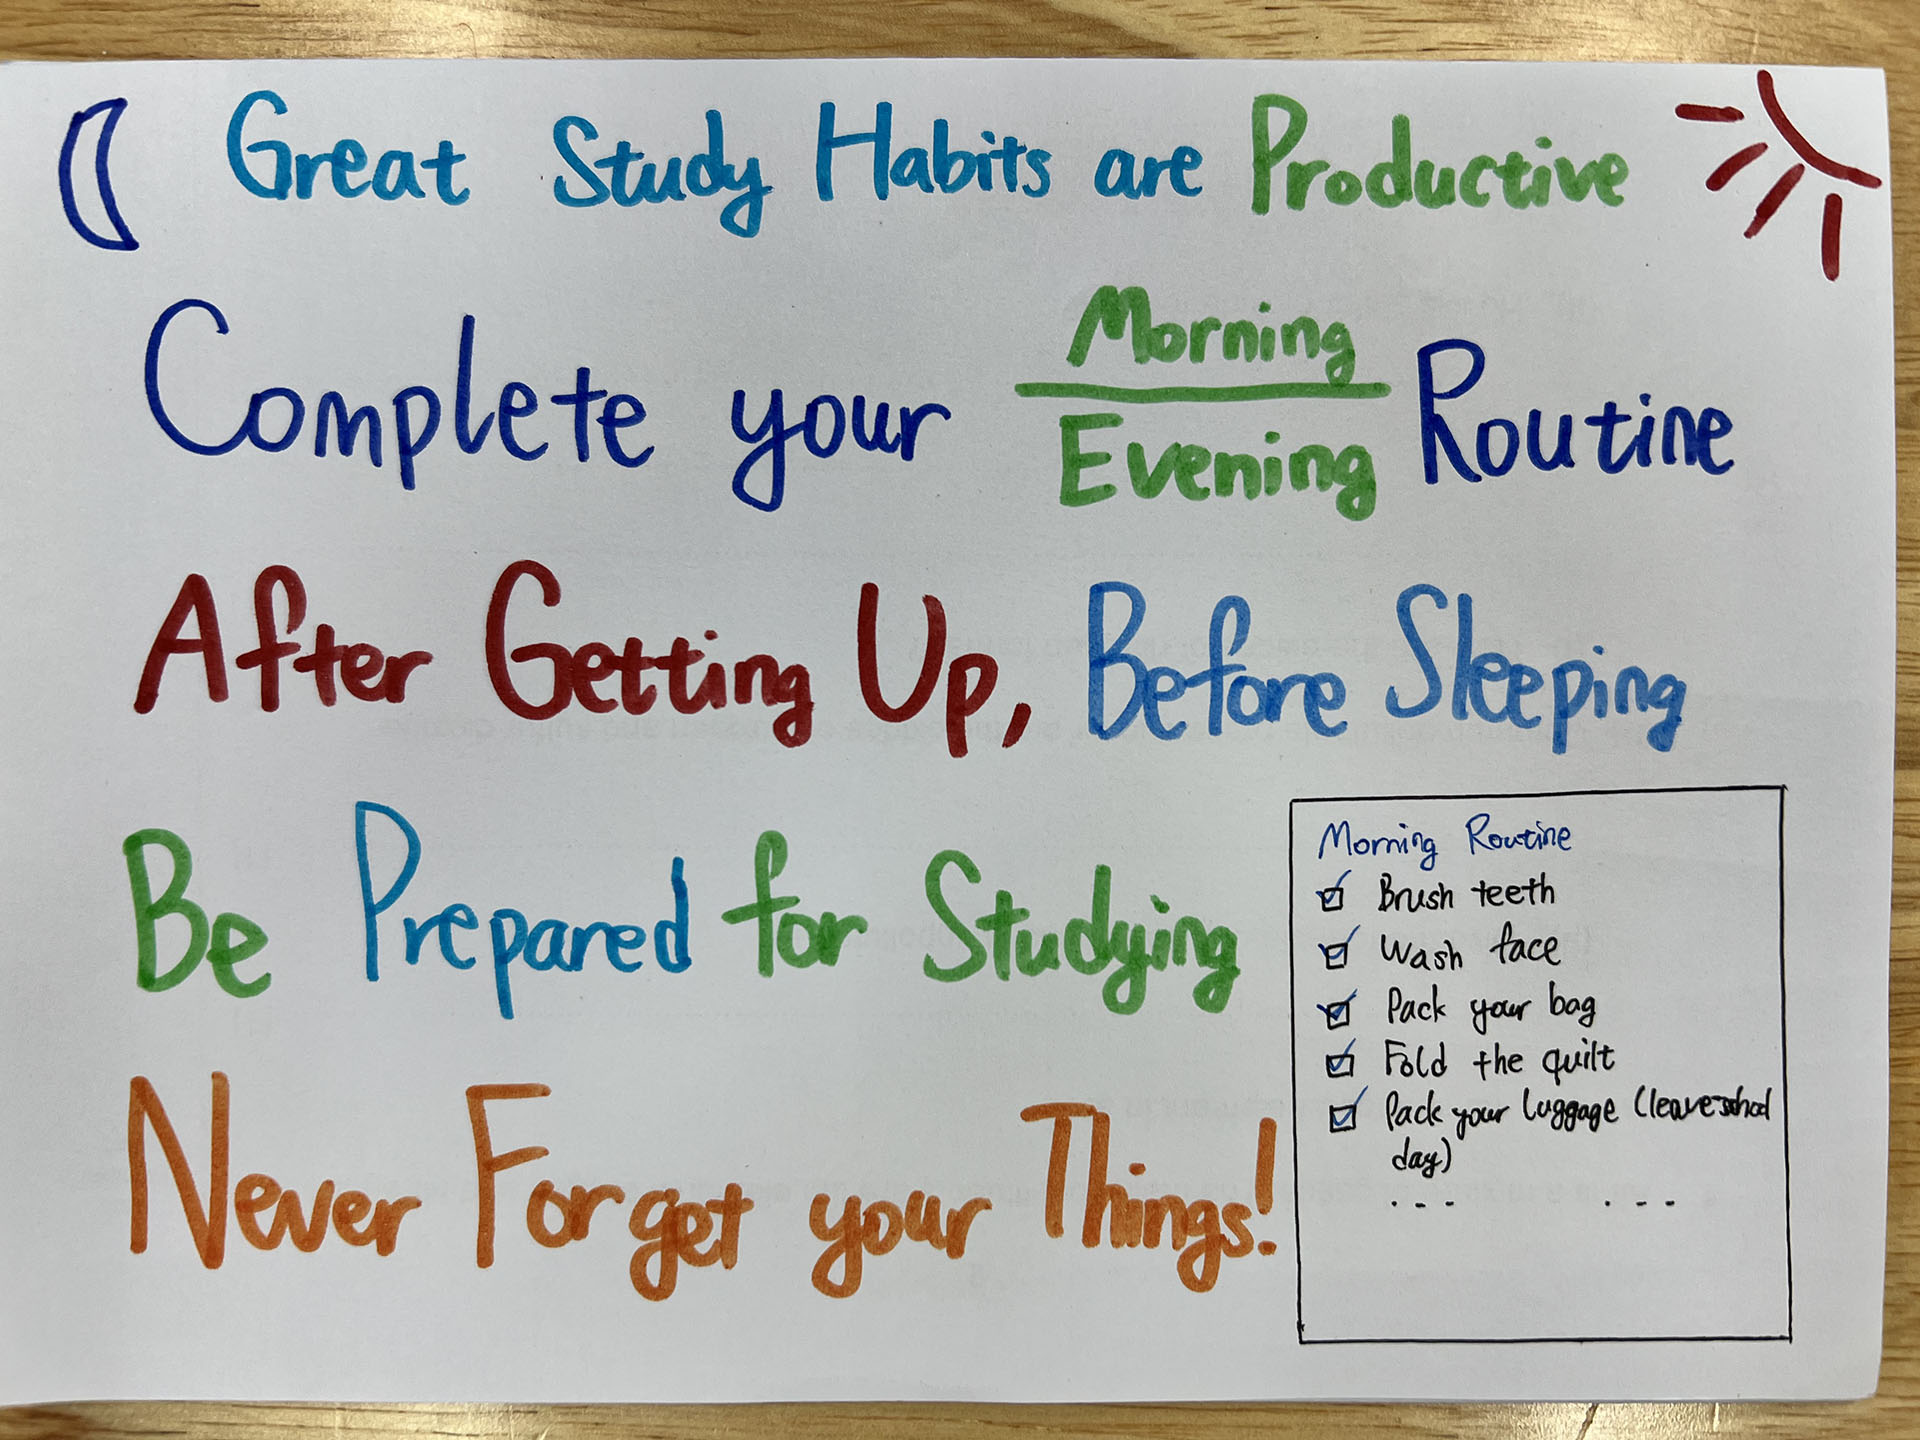 Great Study Habits are Productive
Complete your Morning Routine
Evening
After Getting Up, Before Sleeping
Be Prepared for Studying
Never Forget your Things!
Morning Routine
Brush teeth
Wash face
Pack your bag
Fold the quilt
Pack your luggage (leave school
day)
... ...